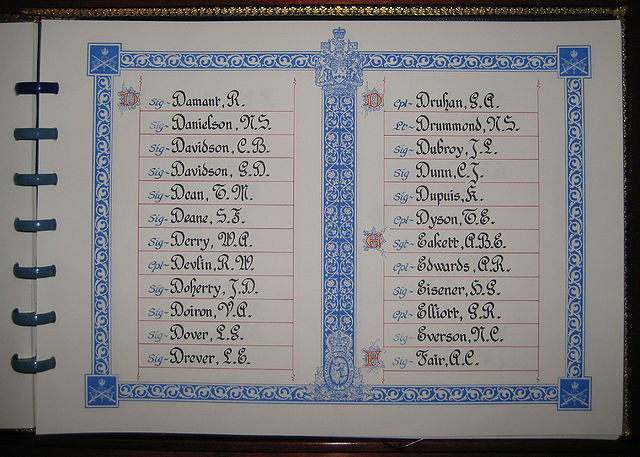 D Sig~ Damant, R.
Sig~ Danielson, N.S.
Sig~ Davidson, C.B.
Sig~ Davidson, G.D.
Sig~ Dean, T.M.
Sig~ Deane, S.F.
Sig~ Derry, W.A.
Cpl~ Devlin, R.W.
Sig~ Doherty, J.D.
Sig~ Doiron, V.A.
Sig~ Dover, L.G.
Sig~ Drever, L.E.
D Cpl~ Druhan, G.A.
Lt~ Drummond, N.S.
Sig~ Dubroy, J.L.
Sig Dunn, C.J.
Sig~ Dupuis, K.
Cpl~ Dyson, T.E.
E Sgt~ Eakett, A.B.E.
Cpl~ Edwards, A.R.
Sig~ Eisener, H.G.
Cpl~ Elliott, G.R.
Sig~ Everson, N.C.
F Sig~ Fair, A.C.